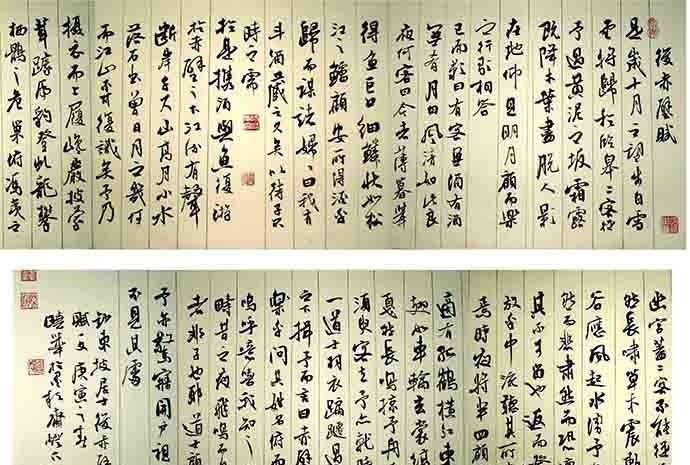 後赤壁賦
是歲十月之望步自雪
堂將歸於臨皋二客從
予過黃泥之坂霜露
既降木葉盡脫人影
在地仰見明月顧而樂
之行歌相答
已而歎曰有客無酒有酒
無肴月白風清如此良
夜何客曰今者薄暮舉
得魚巨口細鱗狀如松
江之鱸顧安所得酒乎
歸而謀諸婦婦曰我有
斗酒藏之久矣以待子不
時之需
於是攜酒與魚復游
於赤壁之下江流有聲
斷岸千尺山高月小水
落石出曾日月之幾何
而江山不可復識矣予乃
攝衣而上履巉巖披蒙
茸踞虎豹登虬龍攀
栖鶻之危巢俯馮夷之
幽宮蓋二客不能從
然長嘯草木震
谷應風起水湧予
然而悲肅然而恐
其不可留也返而登
放乎中流聽其所
焉時夜將半四顧
適有孤鶴橫江東
翅如車輪玄裳縞
戛然長鳴掠予舟
須臾客去予亦就睡
一道士羽衣蹁躚過
之下揖予而言曰赤壁
樂乎問其姓名俯而
嗚呼噫嘻我知之
疇昔之夜飛鳴而
者非子也耶道士顧
予亦驚寤開戶視
不見其處
東坡居士後赤
賦文庚寅之春